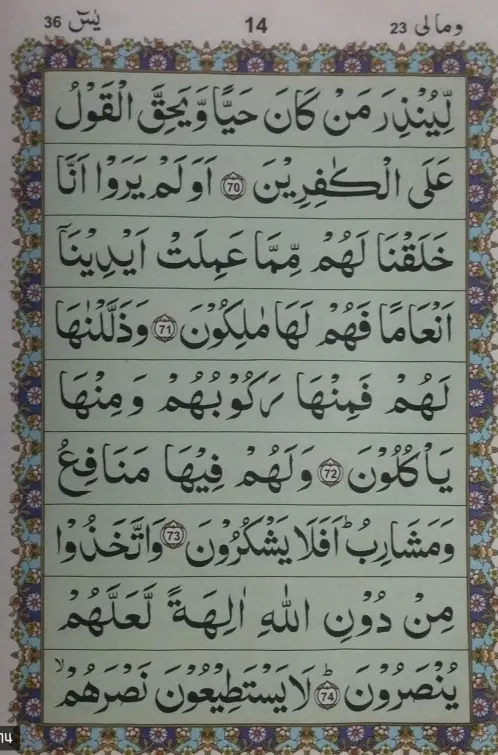 ومالی 23 14 یٰسٓ 36
لِّيُنْذِرَ مَنْ كَانَ حَيًّا وَّيَحِقَّ الْقَوْلُ
عَلَى الْكٰفِرِيْنَ ﴿70﴾ اَوَلَمْ يَرَوْا اَنَّا
خَلَقْنَا لَهُمْ مِّمَّا عَمِلَتْ اَيْدِيْنَاۤ
اَنْعَامًا فَهُمْ لَهَا مٰلِكُوْنَ ﴿71﴾ وَذَلَّلْنٰهَا
لَهُمْ فَمِنْهَا رَكُوْبُهُمْ وَمِنْهَا
يَاْكُلُوْنَ ﴿72﴾ وَلَهُمْ فِيْهَا مَنَافِعُ
وَمَشَارِبُ ؕ اَفَلَا يَشْكُرُوْنَ ﴿73﴾ وَاتَّخَذُوْا
مِنْ دُوْنِ اللّٰهِ اٰلِهَةً لَّعَلَّهُمْ
يُنْصَرُوْنَ ﴿74﴾ ؕ لَا يَسْتَطِيْعُوْنَ نَصْرَهُمْ ۙ
14